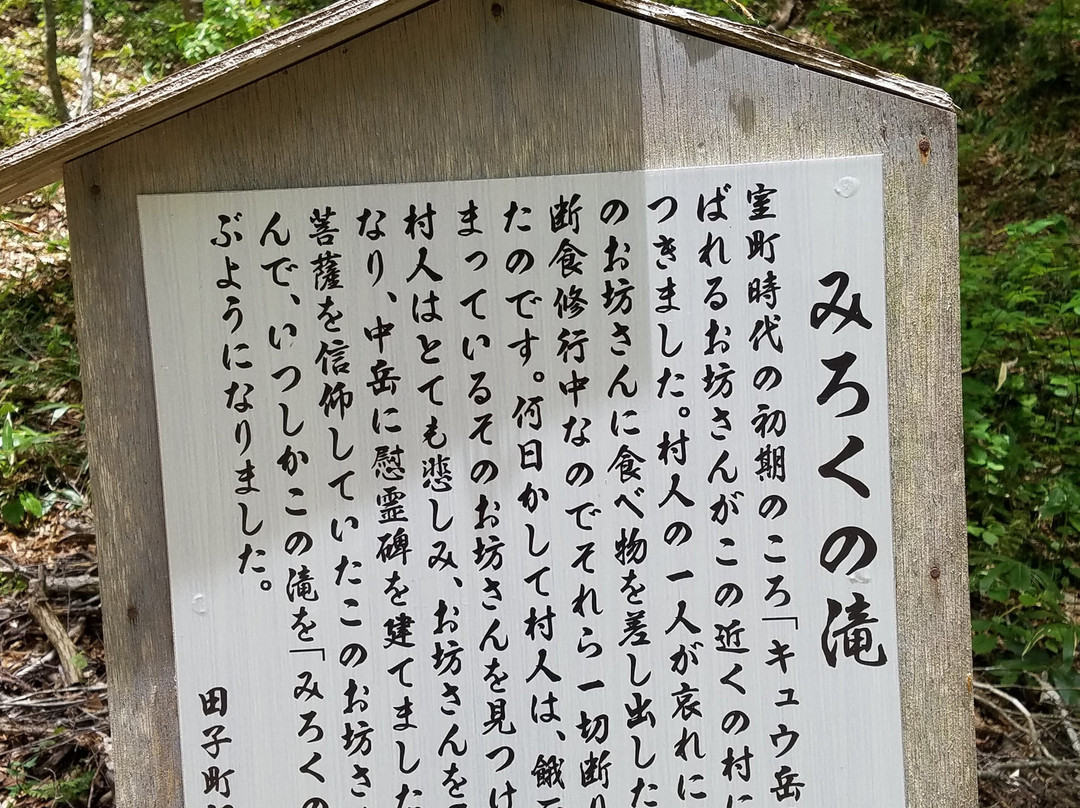 みろくの滝
室町時代の初期のころ「キュウ岳
ばれるお坊さんがこの近くの村に
つきました。村人の一人が哀れに
のお坊さんに食べ物を差し出した
断食修行中なのでそれら一切断り
たのです。何日かして村人は、餓
まっているそのお坊さんを見つけ
村人はとても悲しみ、お坊さんを
なり、中岳に慰霊碑を建てました
菩薩を信仰していたこのお坊さ
んで、いつしかこの滝を「みろくの
ぶようになりました。
田子町